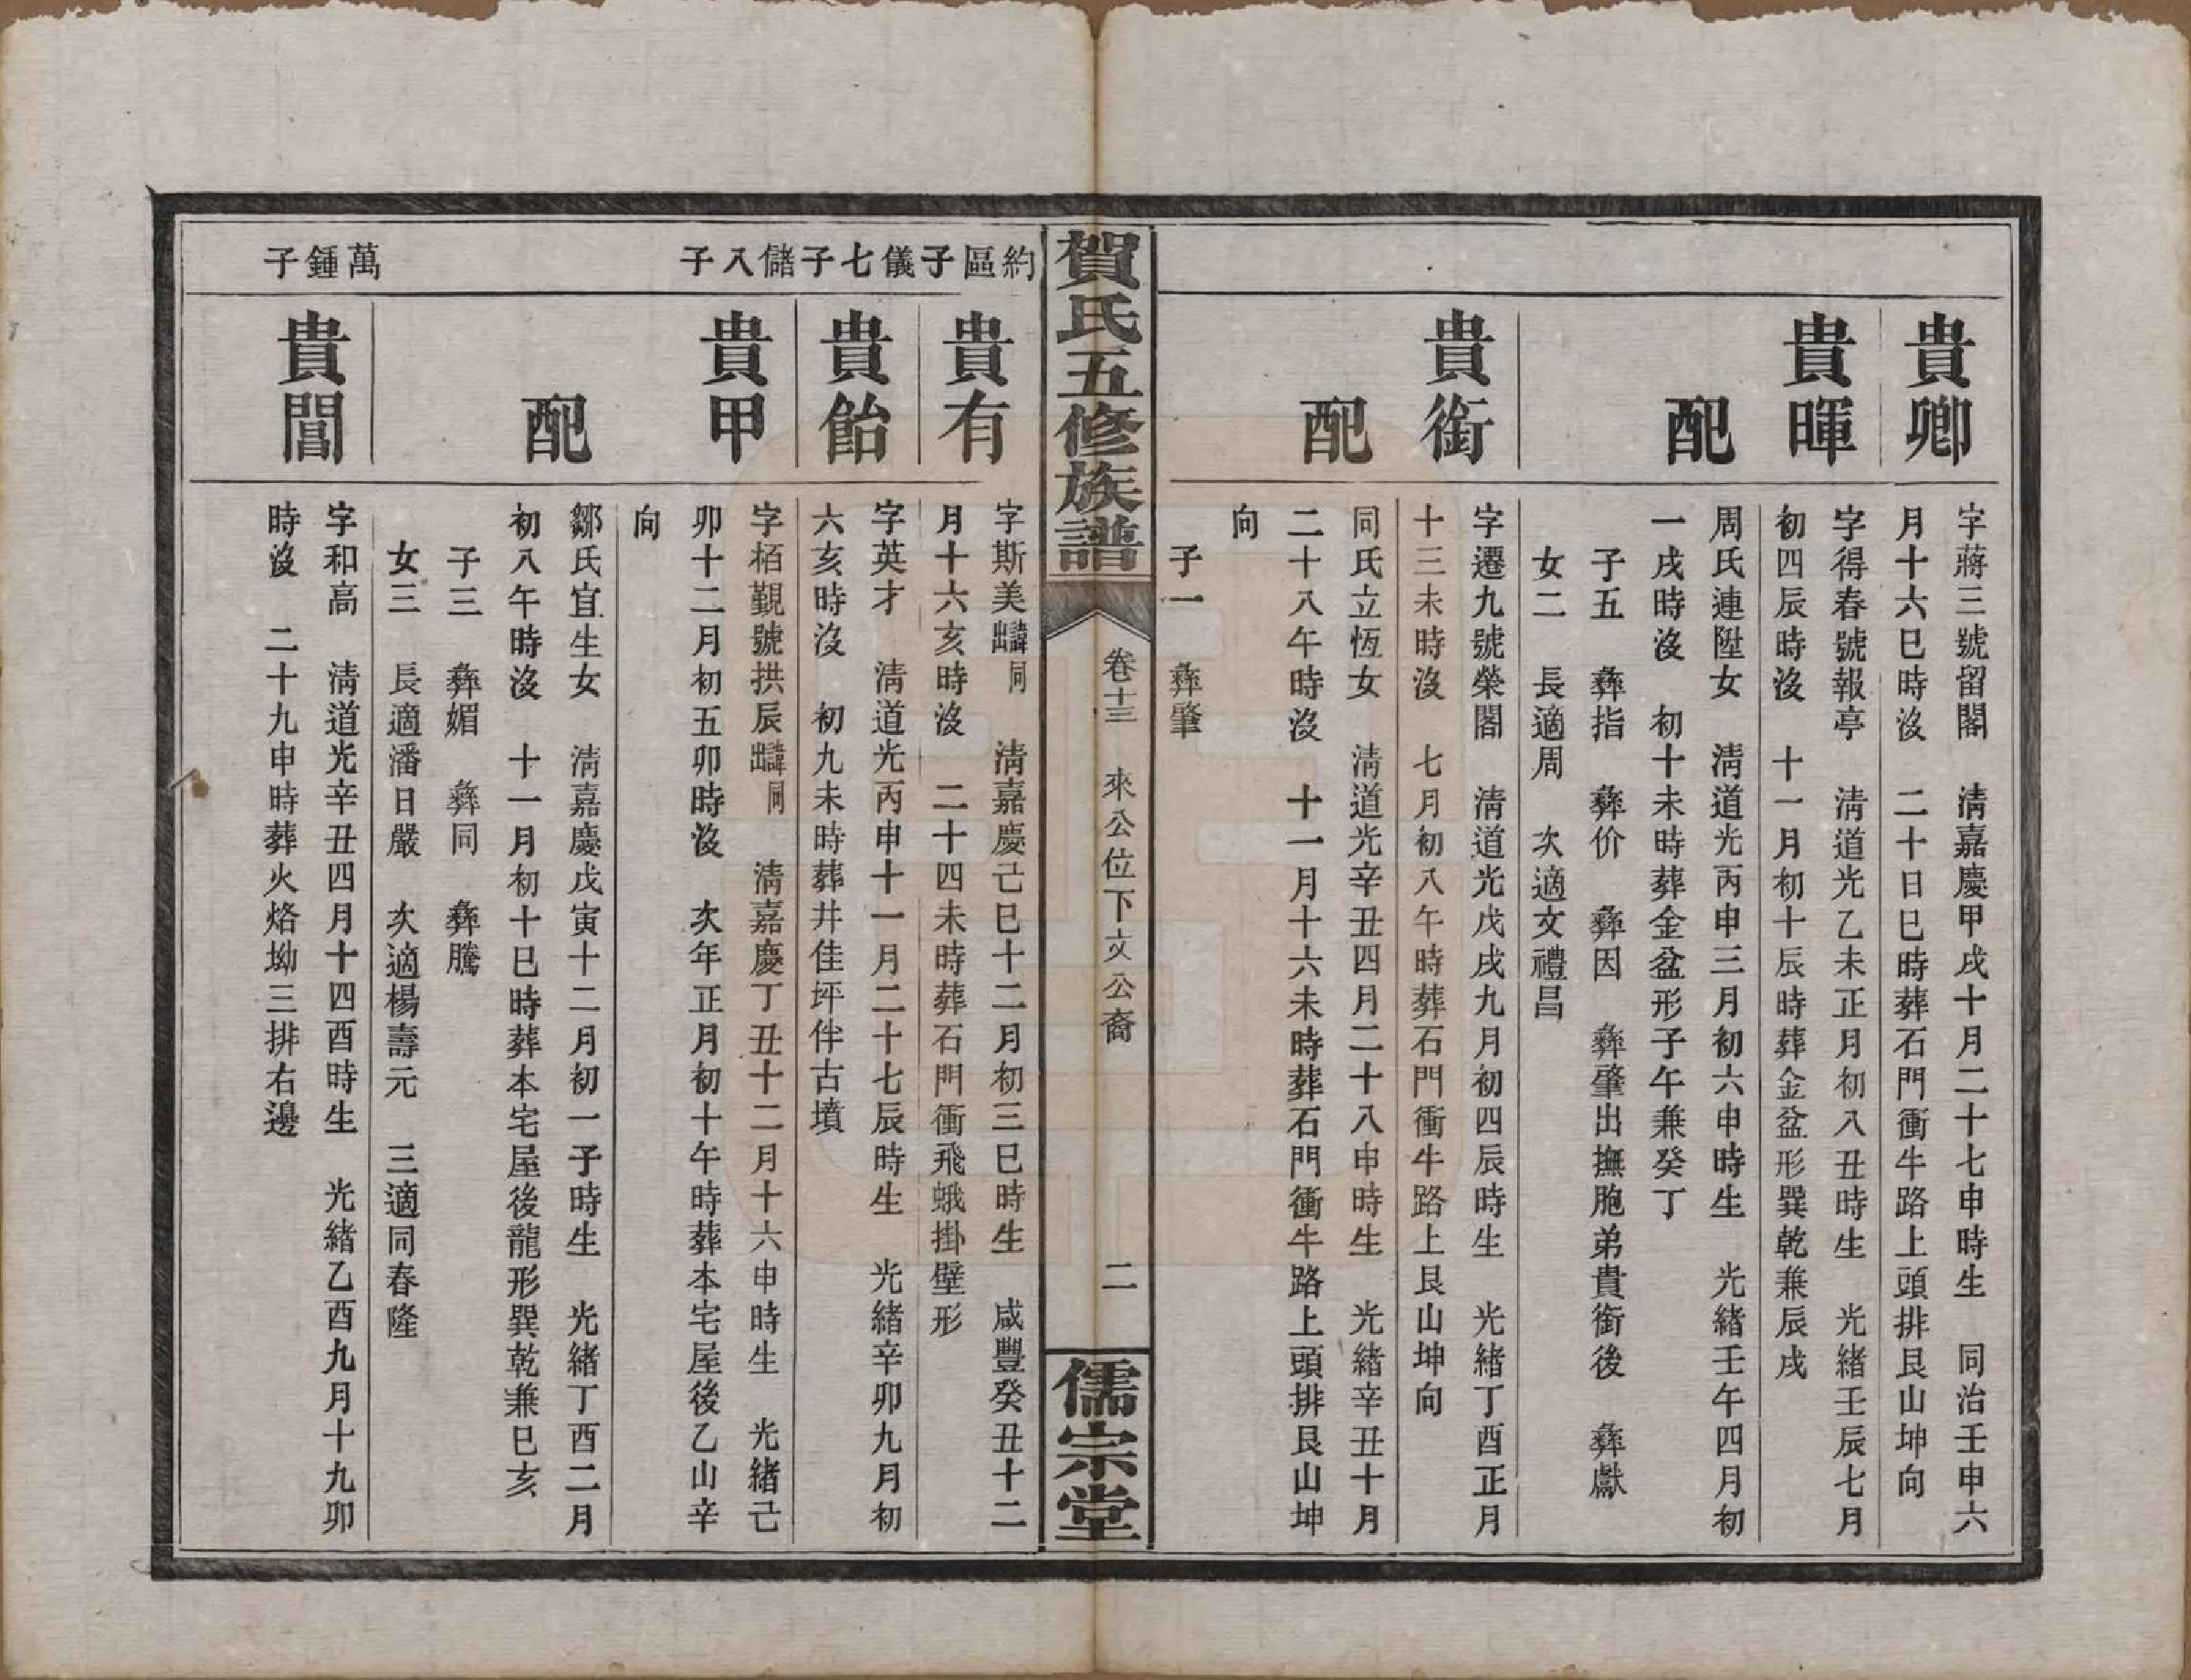 貴卿
字蔣三號留閣　清嘉慶甲戌十月二十七申時生　同治壬申六
月十六巳時沒　二十日巳時葬石門衝牛路上頭排艮山坤向
貴暉
字得春號報亭　清道光乙未正月初八丑時生　光緒壬辰七月
初四辰時沒　十一月初十辰時葬金盆形巽乾兼辰戌
配
周氏連陞女　清道光丙申三月初六申時生　光緒壬午四月初
一戌時沒　初十未時葬金盆形子午兼癸丁
子五　彝指　彝价　彝因　彝肇出撫胞弟貴銜後　彝獻
女二　長適周　次適文禮昌
貴銜
字遷九號榮閣　清道光戊戌九月初四辰時生　光緒丁酉正月
十三未時沒　七月初八午時葬石門衝牛路上艮山坤向
配
同氏立恆女　清道光辛丑四月二十八申時生　光緒辛丑十月
二十八午時沒　十一月十六未時葬石門衝牛路上頭排艮山坤
向
子一　彝肇
賀氏五修族譜
卷十三　來公位下文公裔　二
儒宗堂
約區子
儀七子
儲八子
萬鍾子
貴有
字斯美齣譁同　清嘉慶己巳十二月初三巳時生　咸豐癸丑十二
月十六亥時沒　二十四未時葬石門衝飛蛾掛壁形
貴飴
字英才　清道光丙申十一月二十七辰時生　光緒辛卯九月初
六亥時沒　初九未時葬井佳坪伴古墳
貴甲
字栢觀號拱辰　清嘉慶丁丑十二月十六申時生　光緒己
卯十二月初五卯時沒　次年正月初十午時葬本宅屋後乙山辛
向
配
鄒氏宜生女　清嘉慶戊寅十二月初一子時生　光緒丁酉二月
初八午時沒　十一月初十巳時葬本宅屋後龍形巽乾兼巳亥
子三　彝媚　彝同　彝騰
女三　長適潘日嚴　次適楊壽元　三適同春隆
貴誾
字和高　清道光辛丑四月十四酉時生　光緒乙酉九月十九卯
時沒　二十九申時葬火烙坳三排右邊